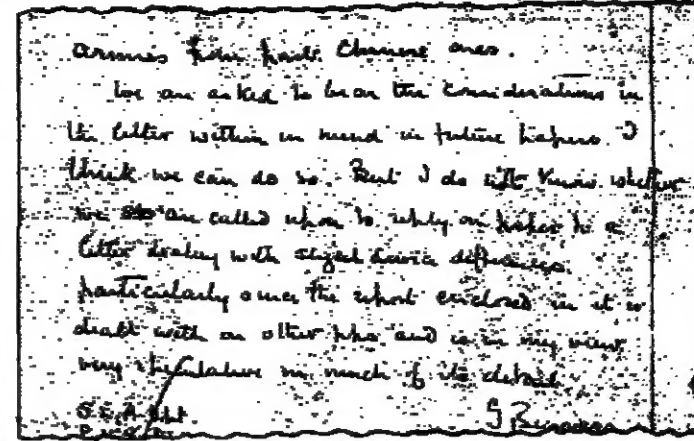 armies from
We are asked to bear the considerations in
the letter within in mind in future papers. I
think we can do so. But I do not know whether
we are called upon to reply on paper to a
letter dealing with
particularly since the report enclosed in it is
dealt with on other pps. and is in my view
very speculative in much of its detail.
S.E.A. Dpt.